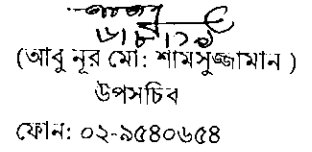 (আবু নূর মো: শামসুজ্জামান )
উপসচিব
ফোন: ০২-৯৫৪০৬৫৪